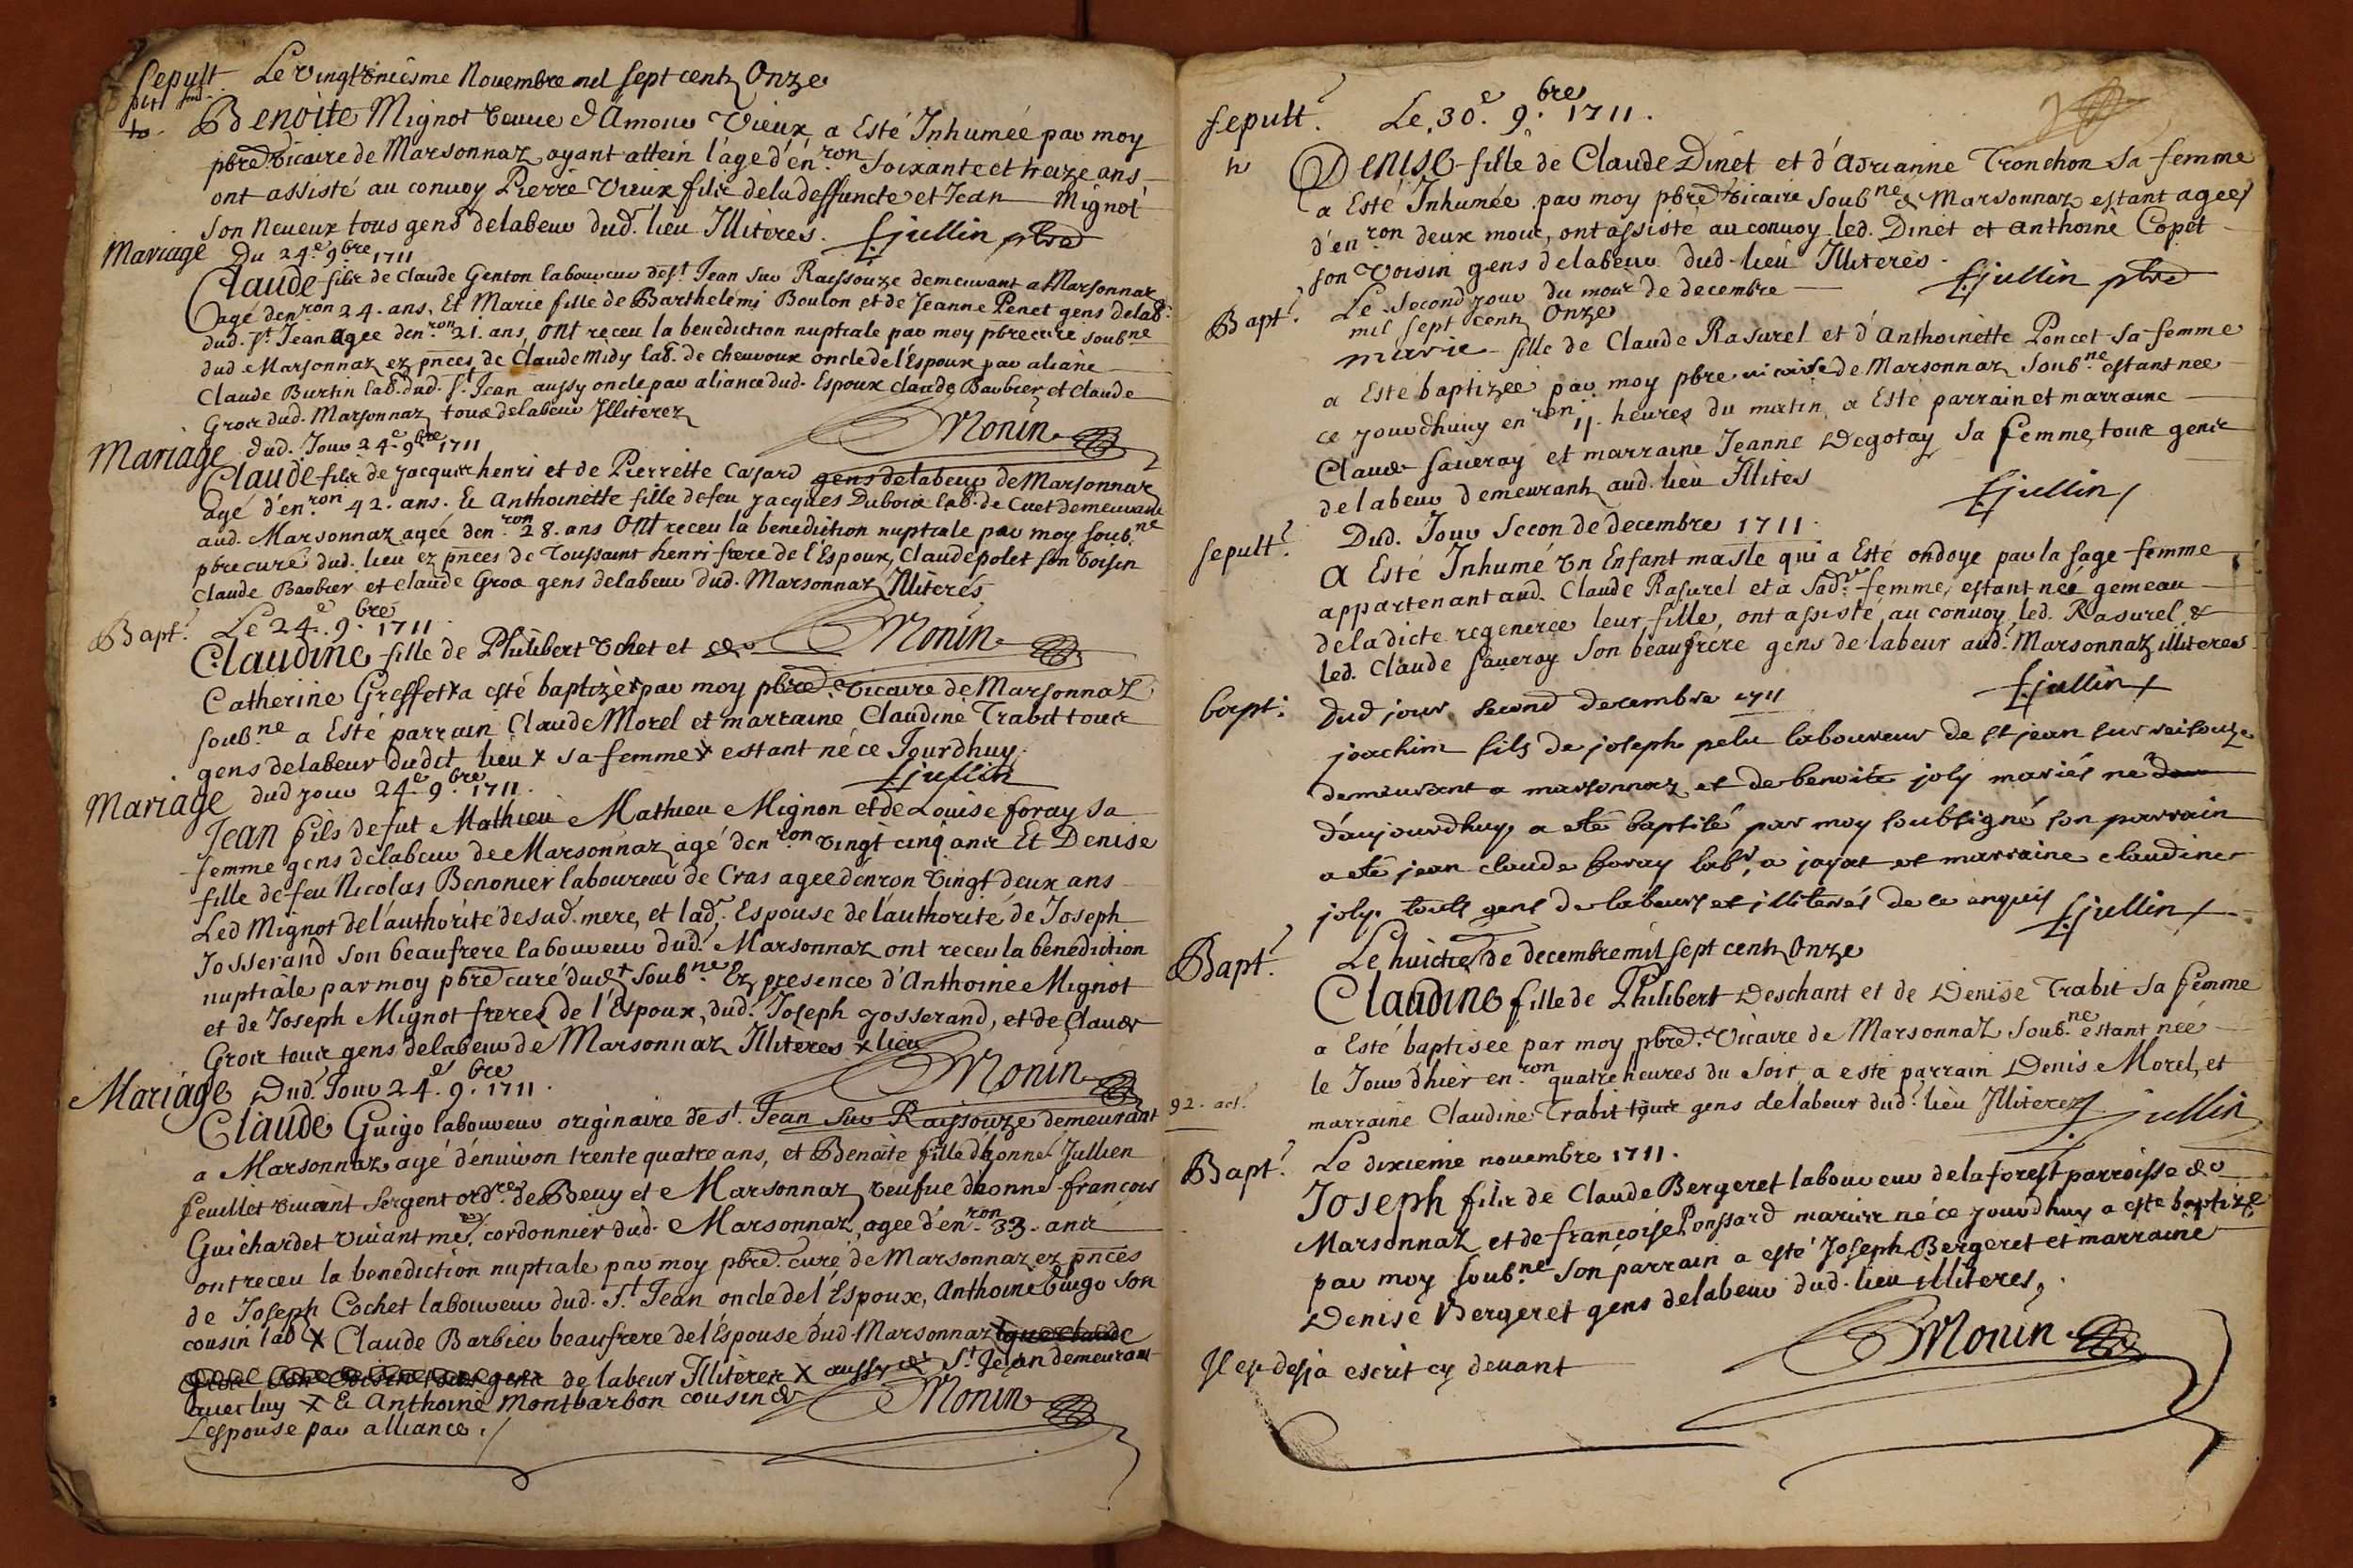 Sepult. Le Vingtvniesme Novembre mil sept centz Onze
Benoite Mignot veuve d'Amour Vieux a Esté Inhumée par moy
pbre vicaire de Marsonnaz ayant attein l'age d'en.ron soixante et treize ans
ont assisté au convoy Pierre Vieux filz de la deffuncte et Jean Mignot
son neveux tous gens de labeur dud. lieu Illiteres. f.jullin pbre
Mariage Du 24.e 9.bre 1711
Claude filz de Claude Genton laboureur de s.t Jean sur Raissouze demeurant a Marsonnaz
agé den.ron 24. ans, Et Marie fille de Barthelemi Boulon et de Jeanne Penet gens de lab.r
dud. s.t Jean agee den.ron 21. ans, ont receu la benediction nuptiale par moy pbre curé soub.ne
dud Marsonnaz ez pnces de Claude Midy lab. de chevroux oncle de l'Espoux par aliane
Claude Burtin lab. dud. s.t Jean aussy oncle par aliance dud. Espoux claude Barbier et Claude
Grox dud. Marsonnaz tous de labeur Illiterez Monin
Mariage dud. Jour 24.e 9.bre 1711
Claude filz de jacques henri et de Pierrette Cassard gens de labeur de Marsonnaz
agé d'en.ron 42. ans. Et anthoinette fille de feu jacques Dubois lab. de Cuet demeurante
aud. Marsonnaz agee den.ron 28. ans Ont receu la benediction nuptiale par moy soub.ne
pbre curé dud. lieu ez pnces de Toussaint henri frere de l'Espoux, Claude polet son voisin
Claude Barbier et claude Grox gens de labeur dud. Marsonnaz Illiterés
Bapt. Le 24.e 9.bre 1711 Monin
Claudine fille de Philibert Vchet et de
Catherine Greffet x a esté baptizée par moy pbre. vicaire de Marsonnaz
soub.ne a Esté parrain Claude Morel et marraine Claudine Trabit tous
gens de labeur dudit lieu x sa femme x estant né ce Jourdhuy.
Mariage dud jour 24.e 9.bre 1711. f.jullin
Jean fils de fut Mathieu Mathieu Mignon et de Louise foray sa
femme gens de labeur de Marsonnaz agé den.ron vingt cinq ans Et Denise
fille de feu Nicolas Benonier laboureur de Cras agee denron vingt deux ans
Led Mignot de l'authorité de sad. mere, et lad. Espouse de l'authorité de Joseph
Josserand son beaufrere laboureur dud. Marsonnaz ont receu la benediction
nuptiale par moy pbre curé dudt soub.ne Ez presence d'Anthoine Mignot
et de Joseph Mignot freres de l'Espoux, dud. Joseph josserand, et de Claude
Grox tous gens de labeur de Marsonnaz Illiteres x lieu
Mariage Dud. Jour 24.e 9.bre 1711. Monin
Claude Guigo laboureur originaire de s.t Jean sur Raissouze demeurant
a Marsonnaz agé d'environ trente quatre ans, et Benoite fille d'honne. Jullien
feuillet vivant sergent ord.re de Beuy et Marsonnaz veufue d'honne. francois
Guichardet vivant me. cordonnier dud. Marsonnaz, agee d'en.ron 33. ans
ont receu la benediction nuptiale par moy pbre. curé de Marsonnaz ez pnces
de Joseph Cochet laboureur dud. s.t Jean oncle de l'Espoux, Anthoine Guigo son
cousin lab x Claude Barbier beaufrere de l'Espouse dud Marsonnaz
gens de labeur Illiterez x aussy de s.t Jean demeurant
avec luy x Et Anthoine Montbarbon cousin de Monin
Lespouse par alliance.
Sepult. Le 30.e 9.bre 1711.
Denise fille de Claude Dinet et d'adrianne Tronchon sa femme
a Esté Inhumée par moy pbre vicaire soub.ne de Marsonnaz estant agee
d'en.ron deux mois, ont assisté au convoy led. Dinet et anthoine Copet
son voisin gens de labeur dud. lieu Illiteres. f.jullin pbre
Bapt. Le Second jour du mois de decembre
mil sept centz Onze
marie fille de Claude Rasurel et d'Anthoinette Poncet sa femme
a Esté baptizée par moy pbre vicaire de Marsonnaz soub.ne estant nee
ce jourdhuy en.ron 11. heures du matin, a Esté parrain et marraine
Claude saveray et marraine Jeanne Degotay sa femme, tous gens
de labeur demeurantz aud. lieu Illites f.jullin
Sepult. Dud. Jour Second decembre 1711.
A Esté Inhumé vn Enfant masle qui a Esté ondoye par la sage femme
appartenant aud. Claude Rasurel et a sad. femme, estant née gemeau
de la dicte regenerée leur fille, ont assisté au convoy led. Rasurel &
led. Claude saveray son beaufrére gens de labeur aud. Marsonnaz illiteres
bapt. Dud jour second decembre 1711 f.jullin
joachim fils de joseph pelu laboureur de st jean sur reisouze
demeurant a marsonnaz et de benoite joly mariés né
d'aujourdhuy a eté baptisé par moy soubsigné son parrain
a eté jean claude foray lab.r a jayat et marraine claudine
joly. touts gens de labeurs et illiterés de ce enquis f.jullin
Bapt. Le huictie de decembre mil sept centz Onze
Claudine fille de Philibert Deschant et de Denise Trabit sa femme
a Esté baptisée par moy pbre. vicaire de Marsonnaz soub.ne estant née
le Jour d'hier en.ron quatre heures du soir, a esté parrain Denis Morel, et
92. act. marraine Claudine Trabit tous gens de labeur dud. lieu Illiterez f.jullin
Bapt. Le dixieme novembre 1711.
Joseph filz de Claude Bergeret laboureur de la forest parroisse de
Marsonnaz et de françoise Ponssard mariés né ce jourdhuy a esté baptizé
par moy soub.ne son parrain a esté Joseph Bergeret et marraine
Denise Bergeret gens de labeur dud. lieu illiteres,
Monin
Il es desja escrit cy devant